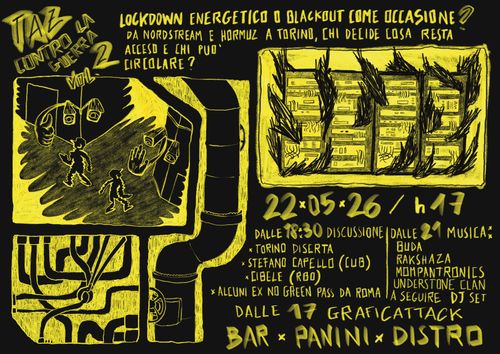 TAZ
CONTRO LA
GUERRA
VOL. 2
LOCKDOWN ENERGETICO O BLACKOUT COME OCCASIONE?
DA NORDSTREAM E HORMUZ A TORINO, CHI DECIDE COSA RESTA
ACCESO E CHI PUO'
CIRCOLARE?
22×05×26 / h17
DALLE 18:30 DISCUSSIONE
× TORINO DISERTA
× STEFANO CAPELLO (CUB)
× CIBELE (RBO)
× ALCUNI EX NO GREEN PASS DA ROMA
DALLE 21 MUSICA:
BUDA
RAKSHAZA
MOMPANTRONICS
UNDERSTONE CLAN
A SEGUIRE DJ SET
DALLE 17 GRAFICATTACK
BAR × PANINI × DISTRO